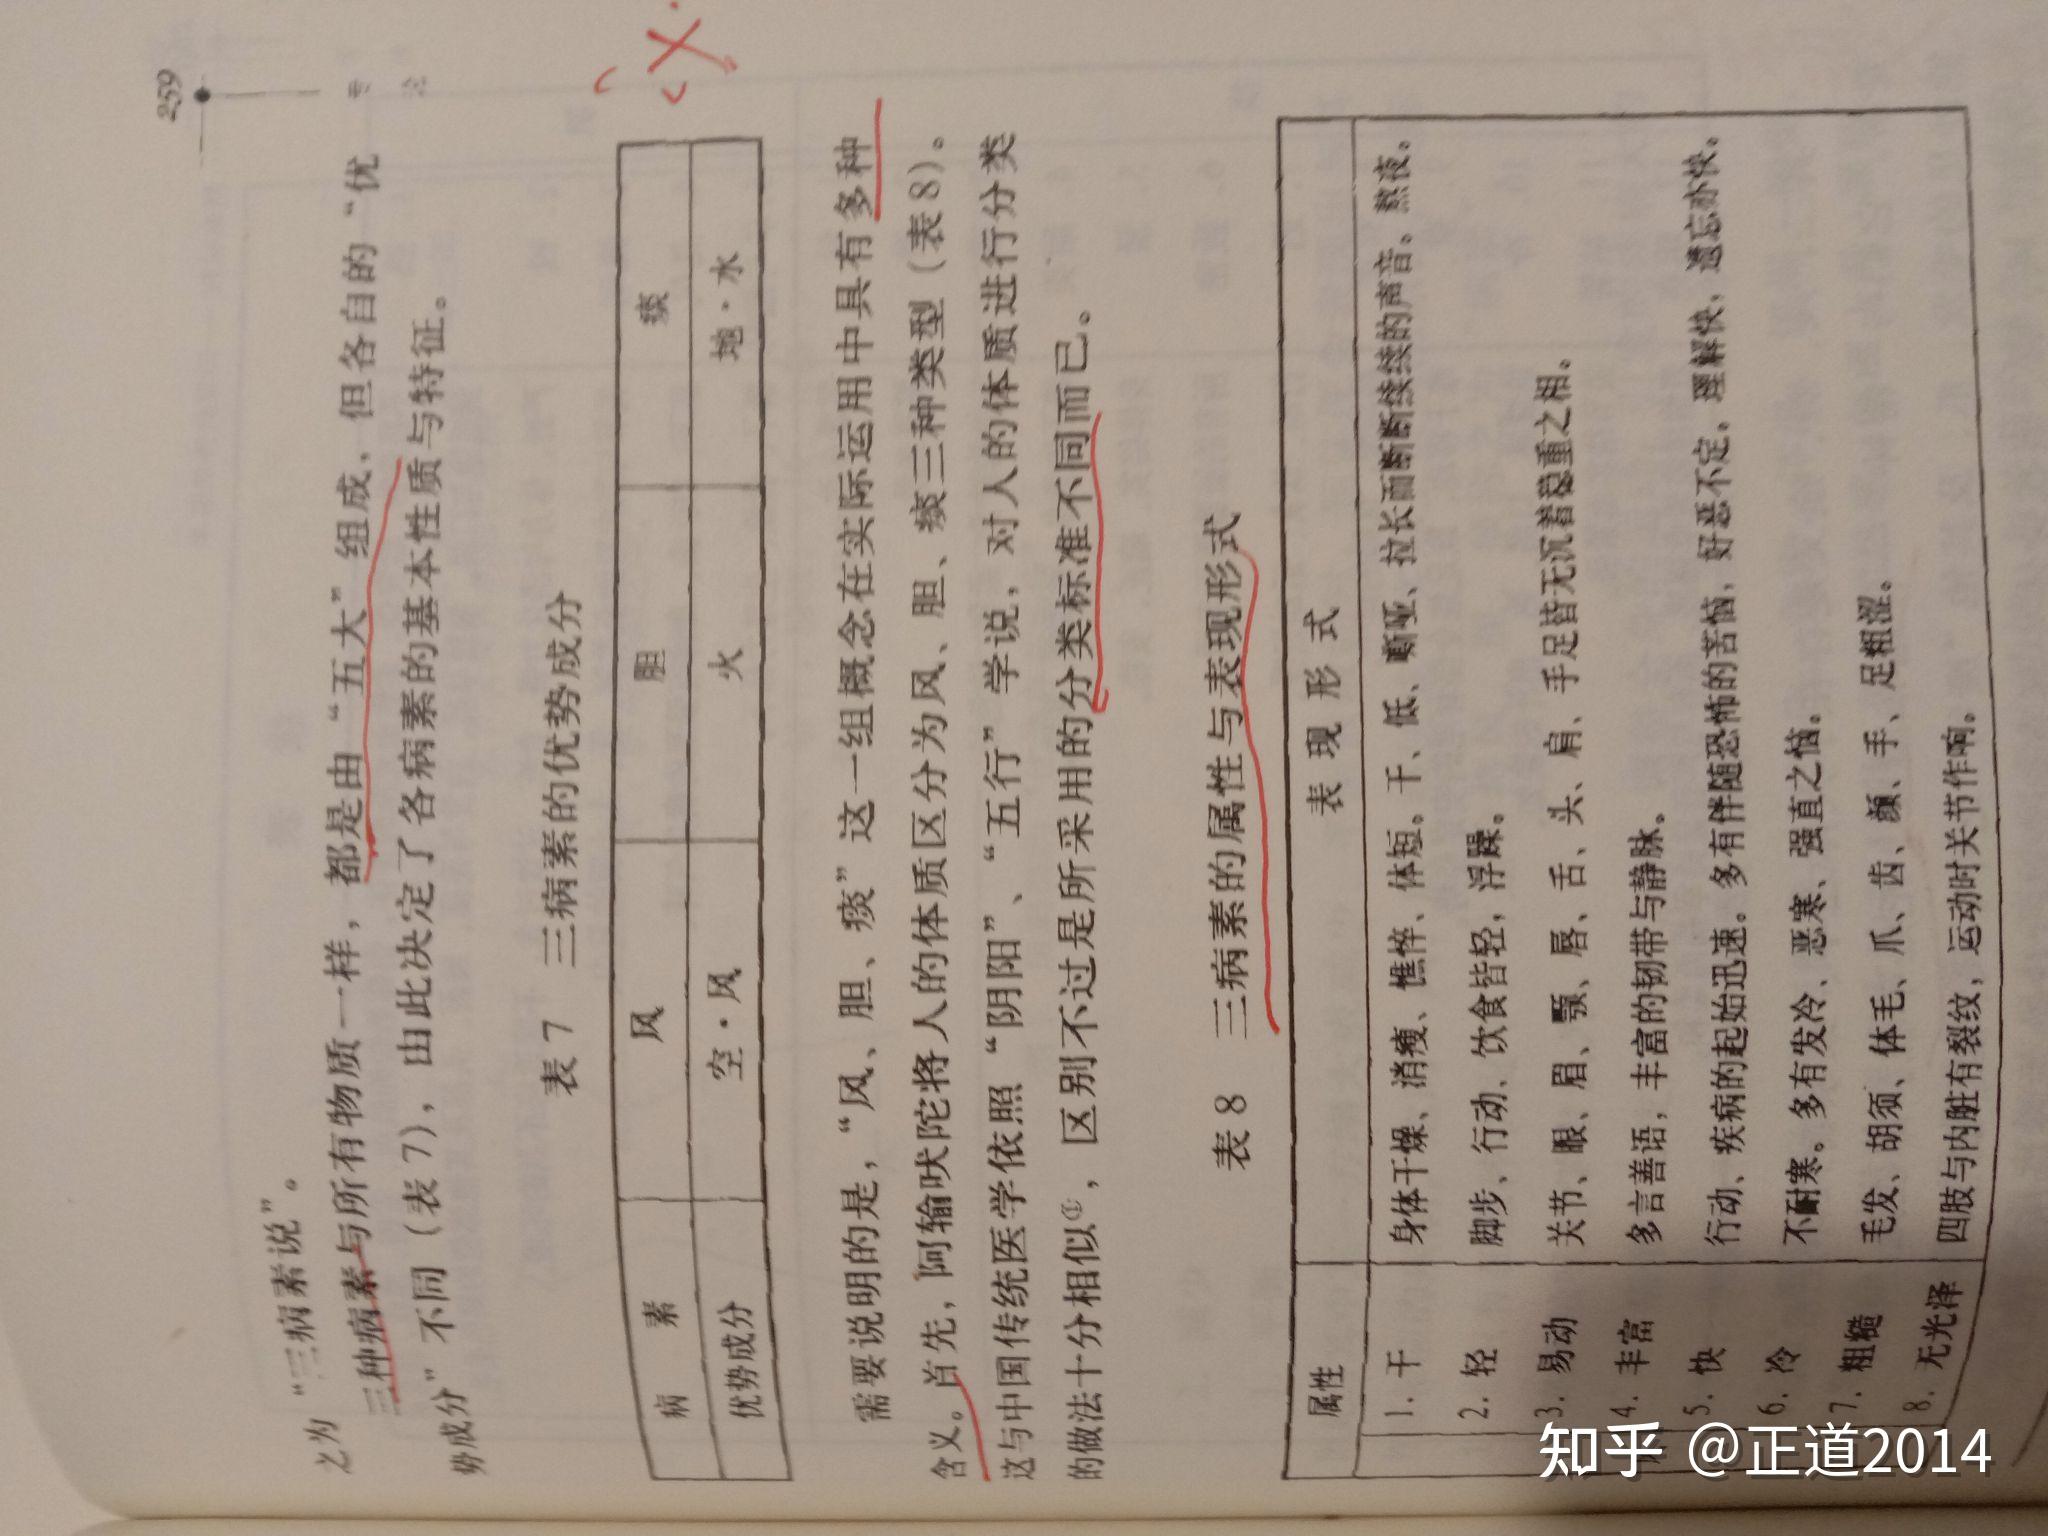 259
专
论
之为“三病素说”。
三种病素与所有物质一样，都是由“五大”组成，但各自的“优
势成分”不同（表7），由此决定了各病素的基本性质与特征。
表7 三病素的优势成分
病 素 风 胆 痰
优势成分 空·风 火 地·水
需要说明的是，“风、胆、痰”这一组概念在实际运用中具有多种
含义。首先，阿输吠陀将人的体质区分为风、胆、痰三种类型（表8）。
这与中国传统医学依照“阴阳”、“五行”学说，对人的体质进行分类
的做法十分相似①，区别不过是所采用的分类标准不同而已。
表8 三病素的属性与表现形式
属性 表 现 形 式
1. 干 身体干燥、消瘦、憔悴、体短。干、低、嘶哑、拉长而断断续续的声音。熬夜。
2. 轻 脚步、行动、饮食皆轻，浮躁。
3. 易动 关节、眼、眉、颚、唇、舌、头、肩、手足皆无沉着稳重之相。
4. 丰富 多言善语，丰富的韧带与静脉。
5. 快 行动、疾病的起始迅速。多有伴随恐怖的苦恼，好恶不定。理解快，遗忘亦快。
6. 冷 不耐寒。多有发冷、恶寒、强直之恼。
7. 粗糙 毛发、胡须、体毛、爪、齿、颜、手、足粗涩。
8. 无光泽 四肢与内脏有裂纹，运动时关节作响。
知乎 @正道2014